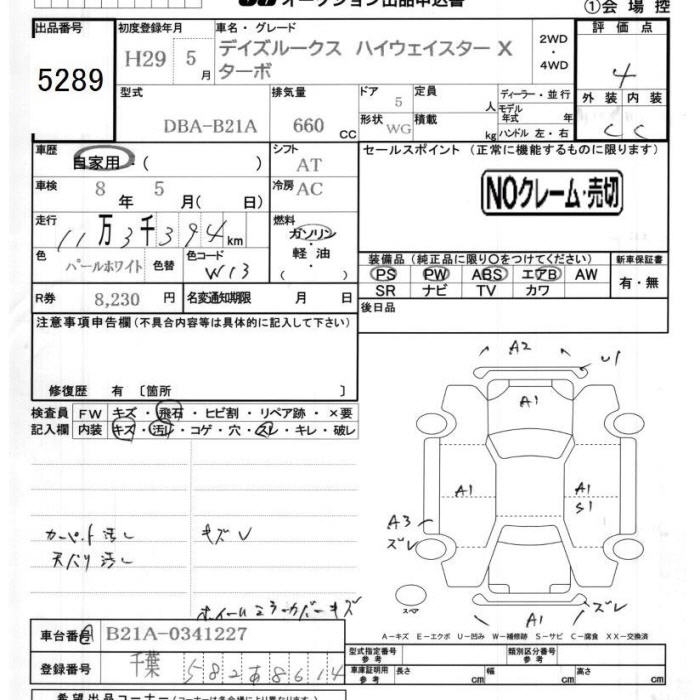 オークション出品申込書
①会場控
出品番号
5289
初度登録年月
H29 5月
車名・グレード
デイズルークス ハイウェイスター X
ターボ
2WD
・
4WD
評価点
4
外装 内装
C C
型式
DBA-B21A
排気量
660 CC
ドア
5
形状
WG
定員
人
積載
kg
ディーラー・並行
モデル
年式 年
ハンドル 左・右
車歴
自家用・( )
シフト
AT
車検
8年 5月( 日)
冷房
AC
走行
11万3千394km
燃料
ガソリン
・
軽油
・
( )
色
パールホワイト
色替
色コード
W13
R券
8,230 円
名変通知期限 月 日
セールスポイント (正常に機能するものに限ります)
NOクレーム・売切
装備品 (純正品に限り〇をつけてください)
PS PW ABS エアB AW
SR ナビ TV カワ
新車保証書
有・無
後日品
注意事項申告欄 (不具合内容等は具体的に記入して下さい)
修復歴 有 〔箇所 〕
検査員
記入欄
FW キズ・飛石・ヒビ割・リペア跡・×要
内装 キズ・汚レ・コゲ・穴・スレ・キレ・破レ
カーペット汚レ
天バリ汚レ
キズレ
ホイールミラーカバーキズ
A2
U1
A1
A1
A1
S1
A3
ズレ
スペア
A1
ズレ
A-キズ E-エクボ U-凹み W-補修跡 S-サビ C-腐食 XX-交換済
車台番号
B21A-0341227
登録番号
千葉 582 あ 8614
型式指定番号
参考
類別区分番号
参考
車庫証明用
参考
長さ cm
幅 cm
高さ cm
希望出品コーナー